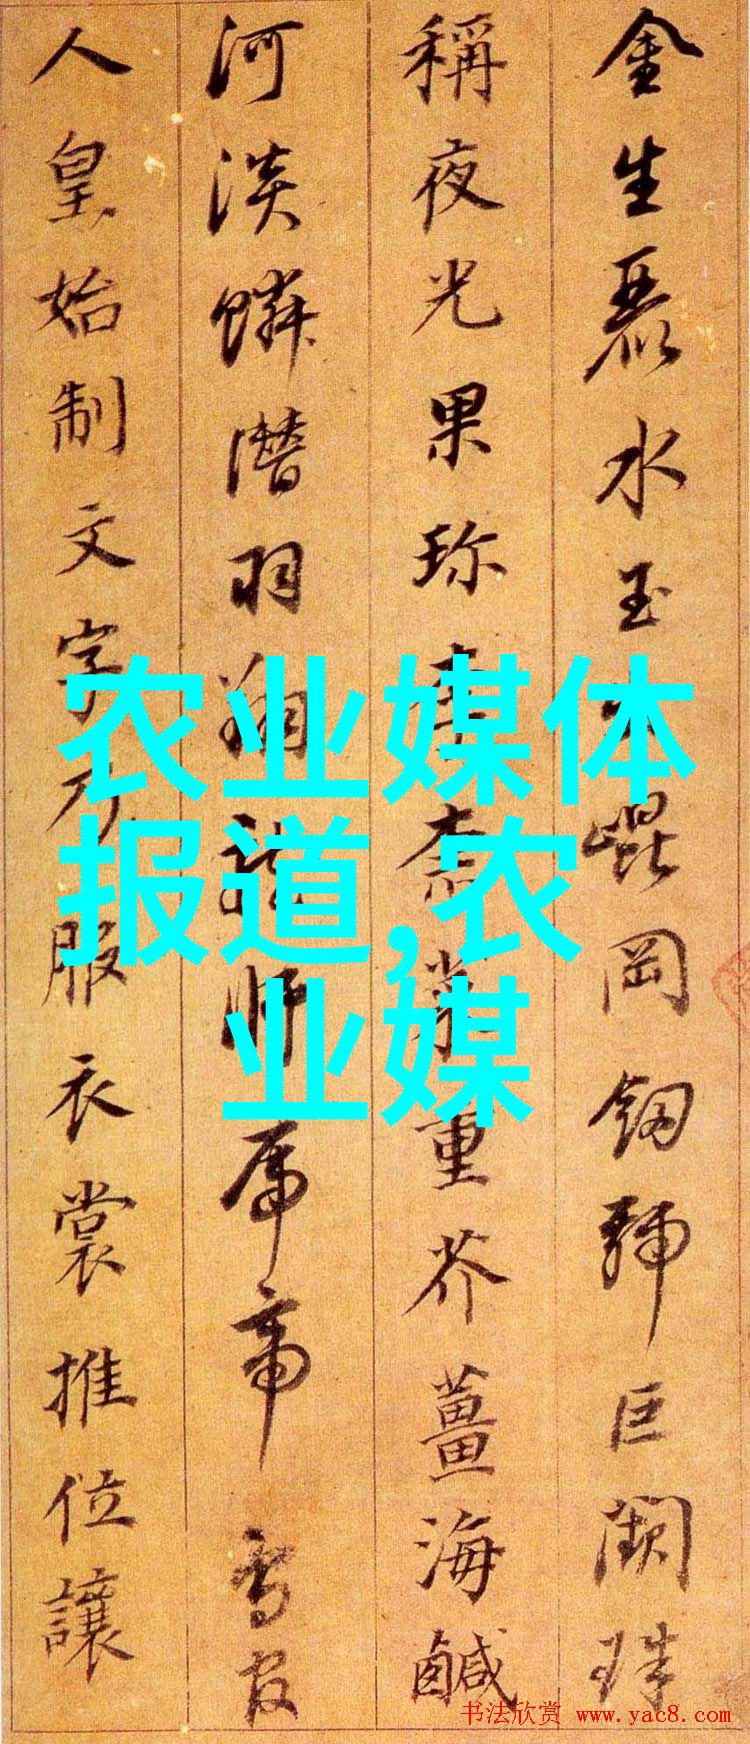 金生麗水玉出崐岡釼號巨闕珠
稱夜光果珍李柰菜重芥薑海鹹
河淡鱗潛羽翔龍師帝鳥官
人皇始制文字乃服衣裳推位讓
农业媒体
报道,农
业媒
书法欣赏 www.yac8.com